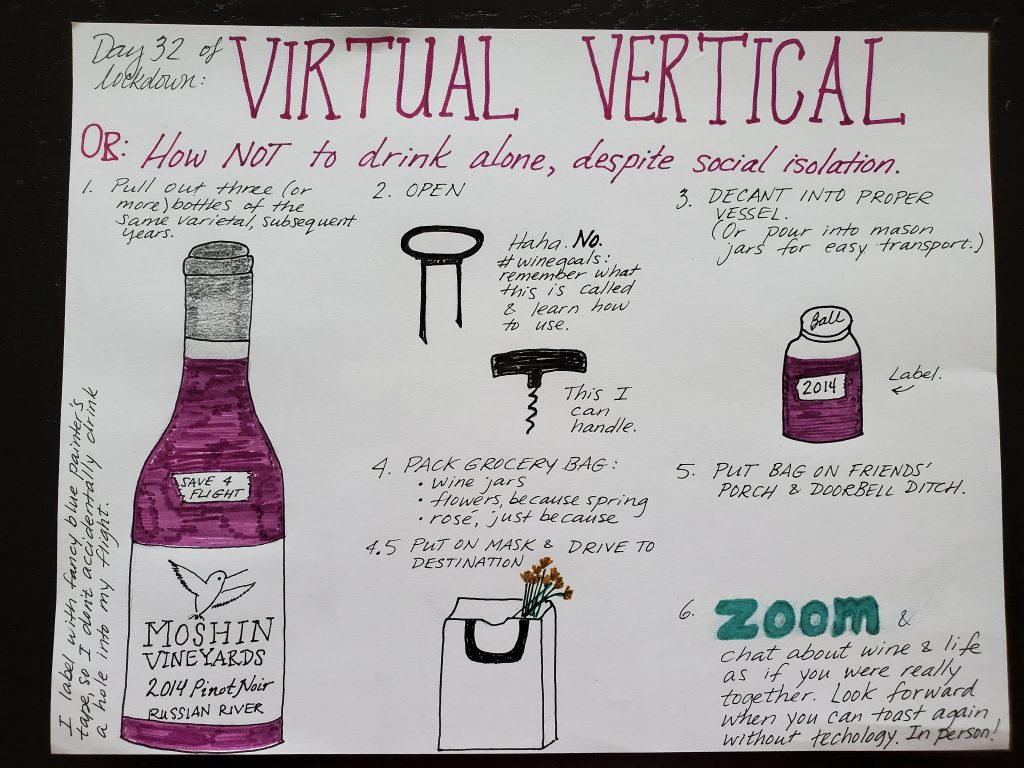 Day 32 of
lockdown:
VIRTUAL VERTICAL
OR: How NOT to drink alone, despite social isolation.
1. Pull out three (or
more) bottles of the
same varietal, subsequent
years.
SAVE 4
FLIGHT
MOSHIN
VINEYARDS
2014 Pinot Noir
RUSSIAN RIVER
I label with fancy blue painter's
tape, so I don't accidentally drink
a hole into my flight.
2. OPEN
Haha. No.
#winegoals:
remember what
this is called
& learn how
to use.
This I
can
handle.
3. DECANT INTO PROPER
VESSEL.
(Or pour into mason
jars for easy transport.)
Ball
2014
Label.
4. PACK GROCERY BAG:
• wine jars
• flowers, because spring
• rosé, just because
4.5 PUT ON MASK & DRIVE TO
DESTINATION
5. PUT BAG ON FRIENDS'
PORCH & DOORBELL DITCH.
6. ZOOM &
chat about wine & life
as if you were really
together. Look forward
when you can toast again
without techology. In person!